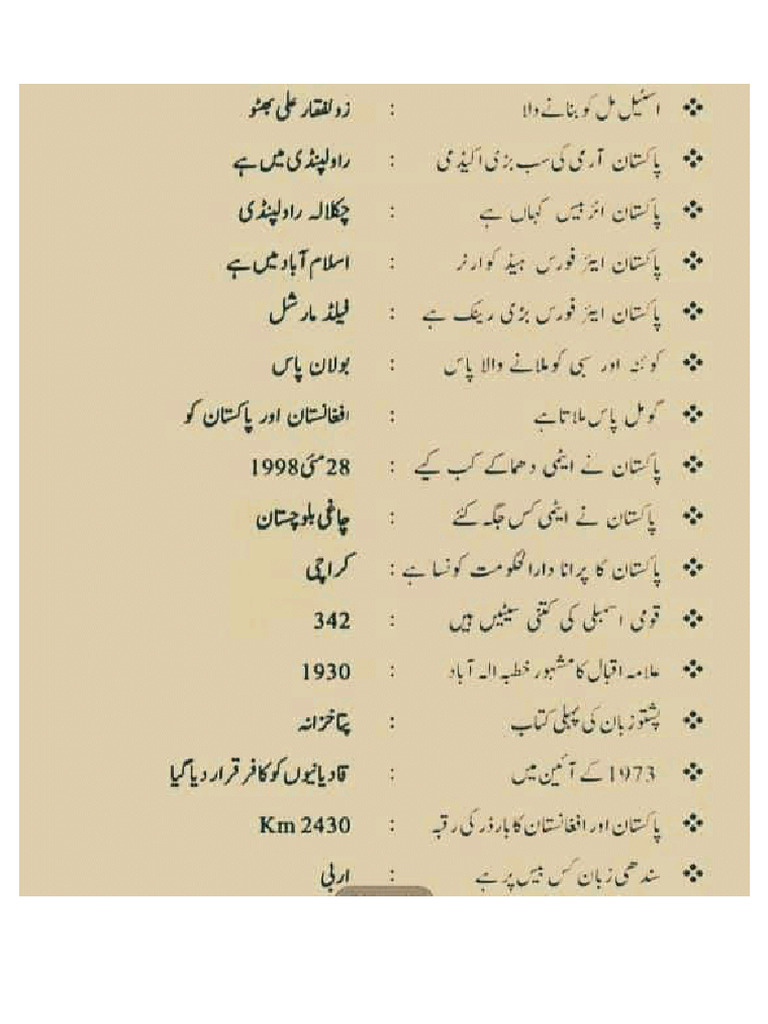 ❖ اسٹیل مل کو بنانے والا : زولفقار علی بھٹو
❖ پاکستان آرمی کی سب بڑی اکیڈمی : راولپنڈی میں ہے
❖ پاکستان ائر بیس کہاں ہے : چکلالہ راولپنڈی
❖ پاکستان ایئر فورس ہیڈ کوارٹر : اسلام آباد میں ہے
❖ پاکستان ایئر فورس بڑی رینک ہے : فیلڈ مارشل
❖ کوئٹہ اور سبی کو ملانے والا پاس : بولان پاس
❖ گومل پاس ملاتا ہے : افغانستان اور پاکستان کو
❖ پاکستان نے ایٹمی دھماکے کب کیے : 28 مئی 1998
❖ پاکستان نے ایٹمی کس جگہ کئے : چاغی بلوچستان
❖ پاکستان کا پرانا دارالحکومت کونسا ہے : کراچی
❖ قومی اسمبلی کی کتنی سیٹیں ہیں : 342
❖ علامہ اقبال کا مشہور خطبہ الہ آباد : 1930
❖ پشتو زبان کی پہلی کتاب : پٹا خزانہ
❖ 1973 کے آئین میں : قادیانیوں کو کافر قرار دیا گیا
❖ پاکستان اور افغانستان کا بارڈر کی رقبہ : 2430 Km
❖ سندھی زبان کس بیس پر ہے : اربی